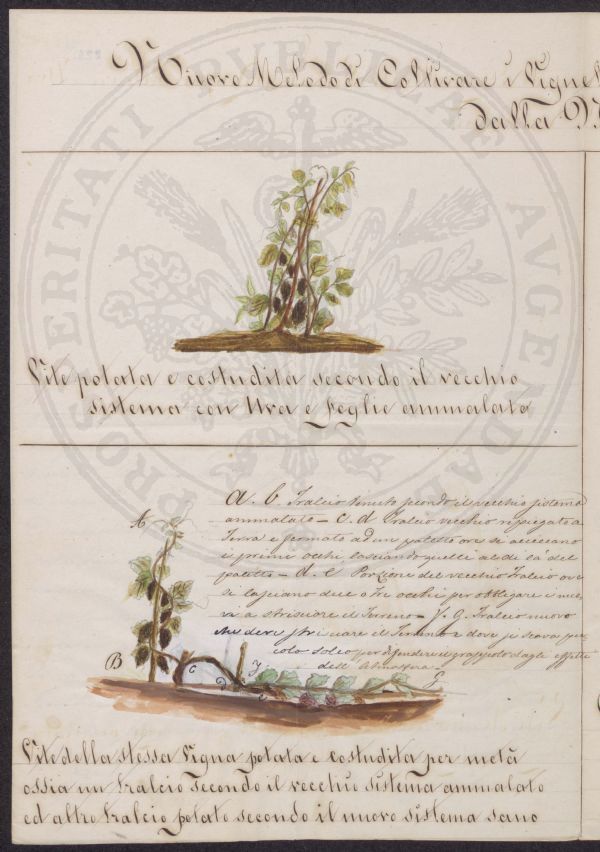 Nuovo Metodo di Coltivare i Vigne
dalla
Vite potata e costudita secondo il vecchio
sistema con Uva e foglie ammalate
a. b Tralcio tenuto secondo il vecchio sistema
ammalato - C. d Tralcio vecchio ripiegato a
Terra e fermato ad un paletto ove si acciecano
i primi occhi lasciando quelli al di là del
paletto - d. e Porzione del vecchio Tralcio ove
si lasciano due o tre occhi per obbligare i
a strisciare il Terreno - f. g. Tralcio nuovo
che deve strisciare il Terreno e dove si scava
colo solco per difendere il grappolo dagli effetti
dell' Atmosfera
A
B
C
D
E
Vite della stessa Vigna potata e costudita per metà
ossia un Tralcio secondo il vecchio sistema ammalato
ed altro Tralcio potato secondo il nuovo sistema sano
PROSPERITATI PVBLICAE AVGENDAE